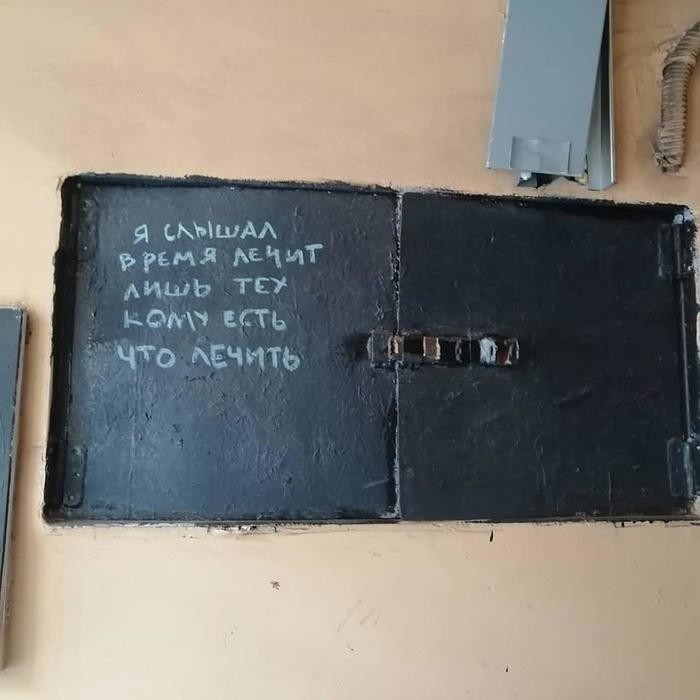 Я СЛЫШАЛ
ВРЕМЯ ЛЕЧИТ
ЛИШЬ ТЕХ
КОМУ ЕСТЬ
ЧТО ЛЕЧИТЬ